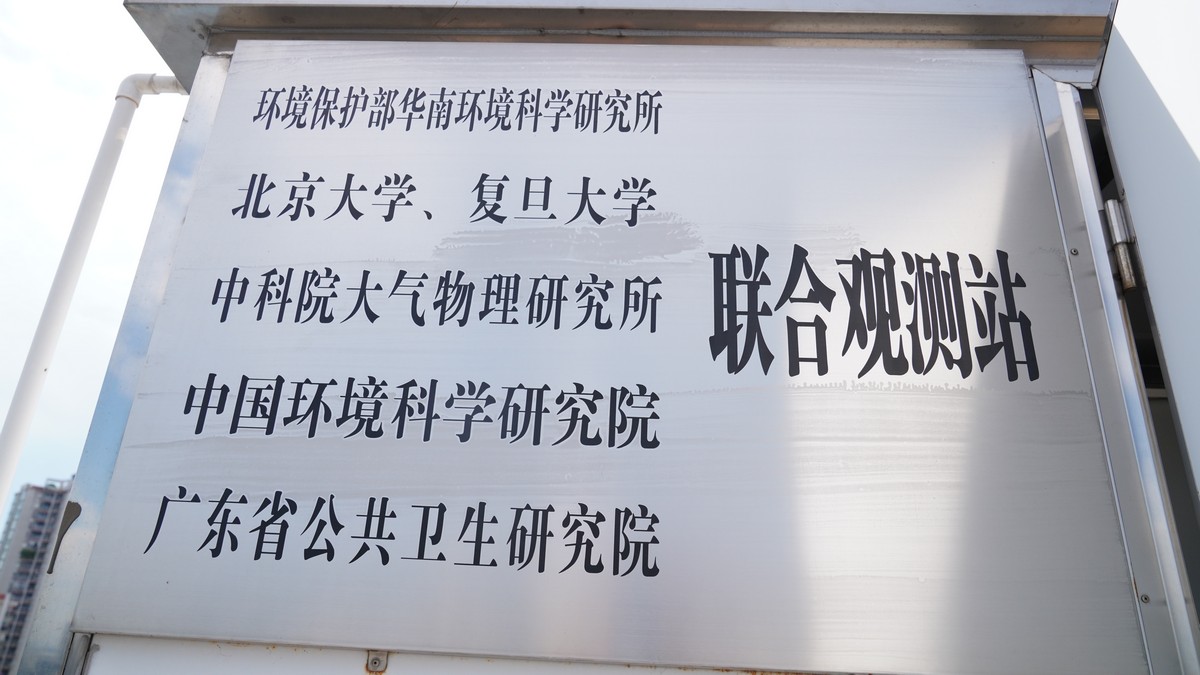 环境保护部华南环境科学研究所
北京大学、复旦大学
中科院大气物理研究所
中国环境科学研究院
广东省公共卫生研究院
联合观测站